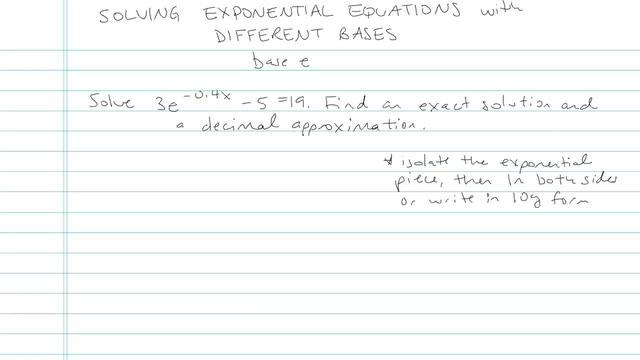 SOLVING EXPONENTIAL EQUATIONS with
DIFFERENT BASES
base e
Solve 3e^-0.4x - 5 = 19. Find an exact solution and
a decimal approximation.
* isolate the exponential
piece, then ln both sides
or write in log form